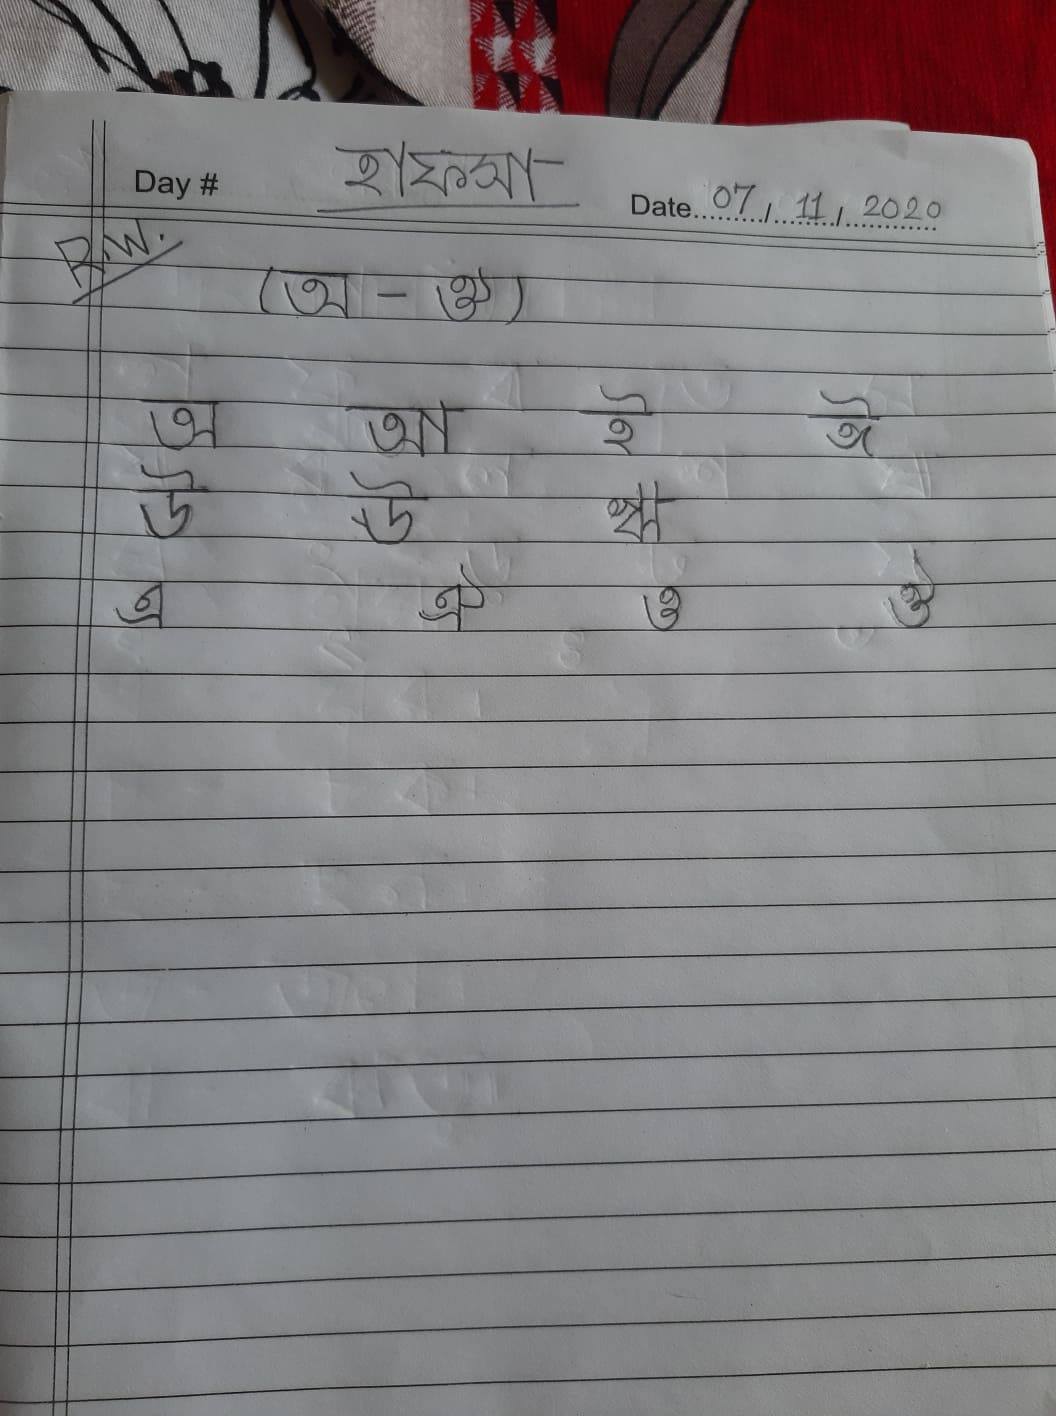 Day # হাফসা Date 07/11/2020
R.W.
(অ - ঔ)
অ আ ই ঈ
উ ঊ ঋ
এ ঐ ও ঔ